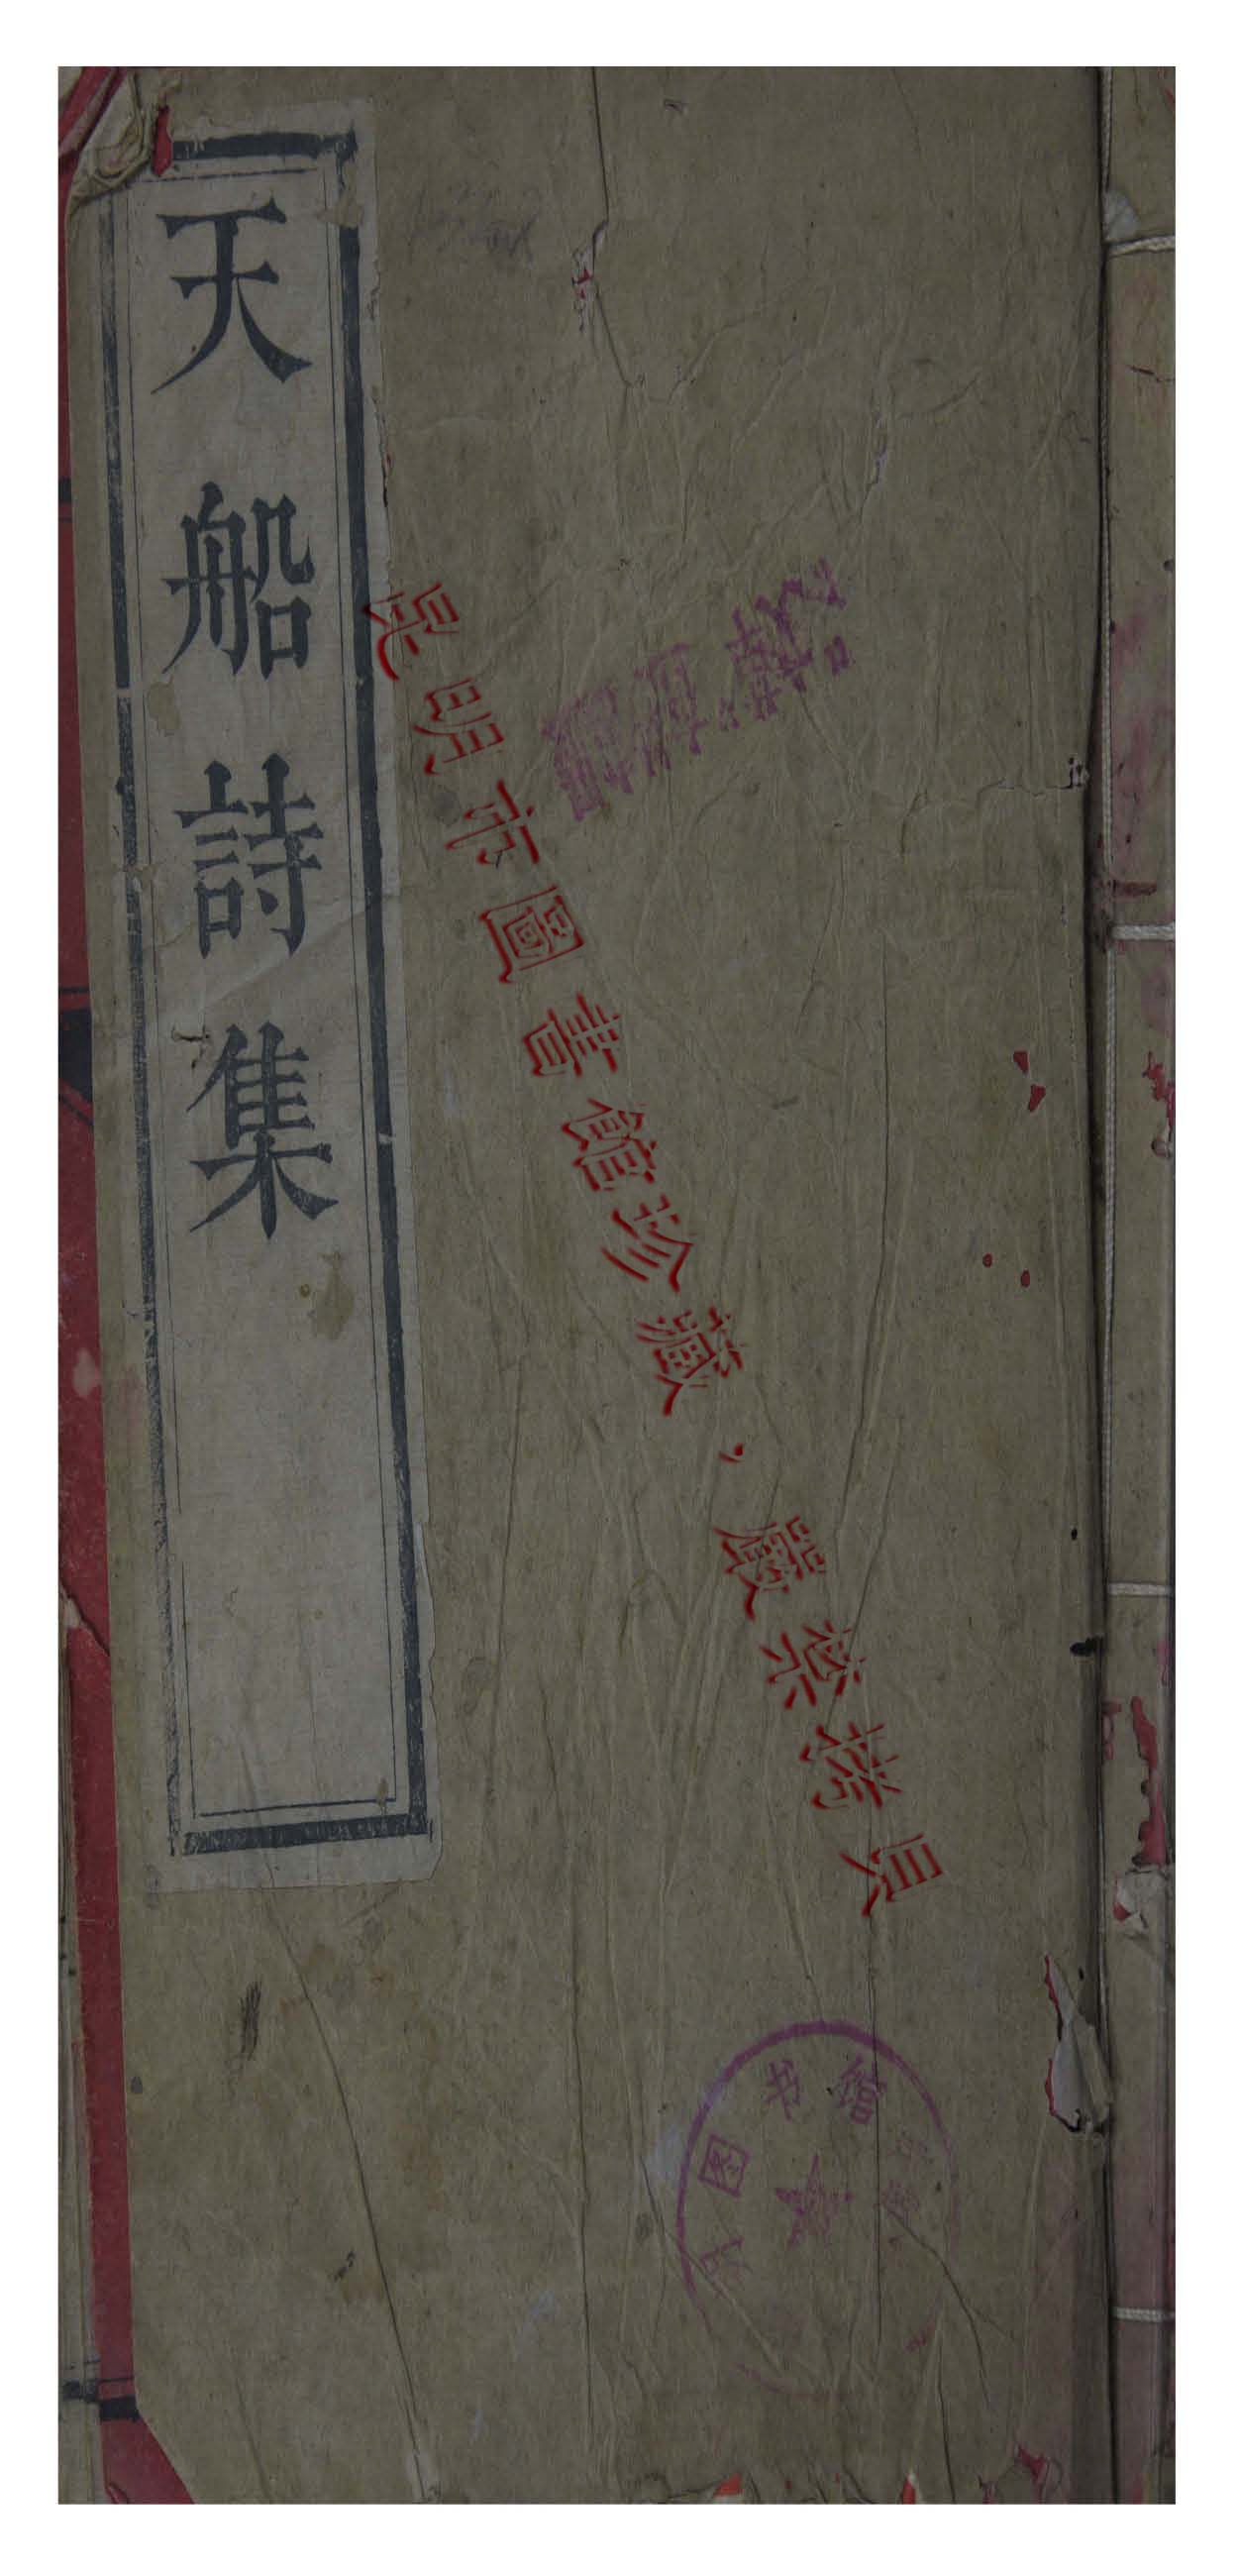 天船詩集
昆明市圖書館珍�，嚴禁拷貝
图书馆